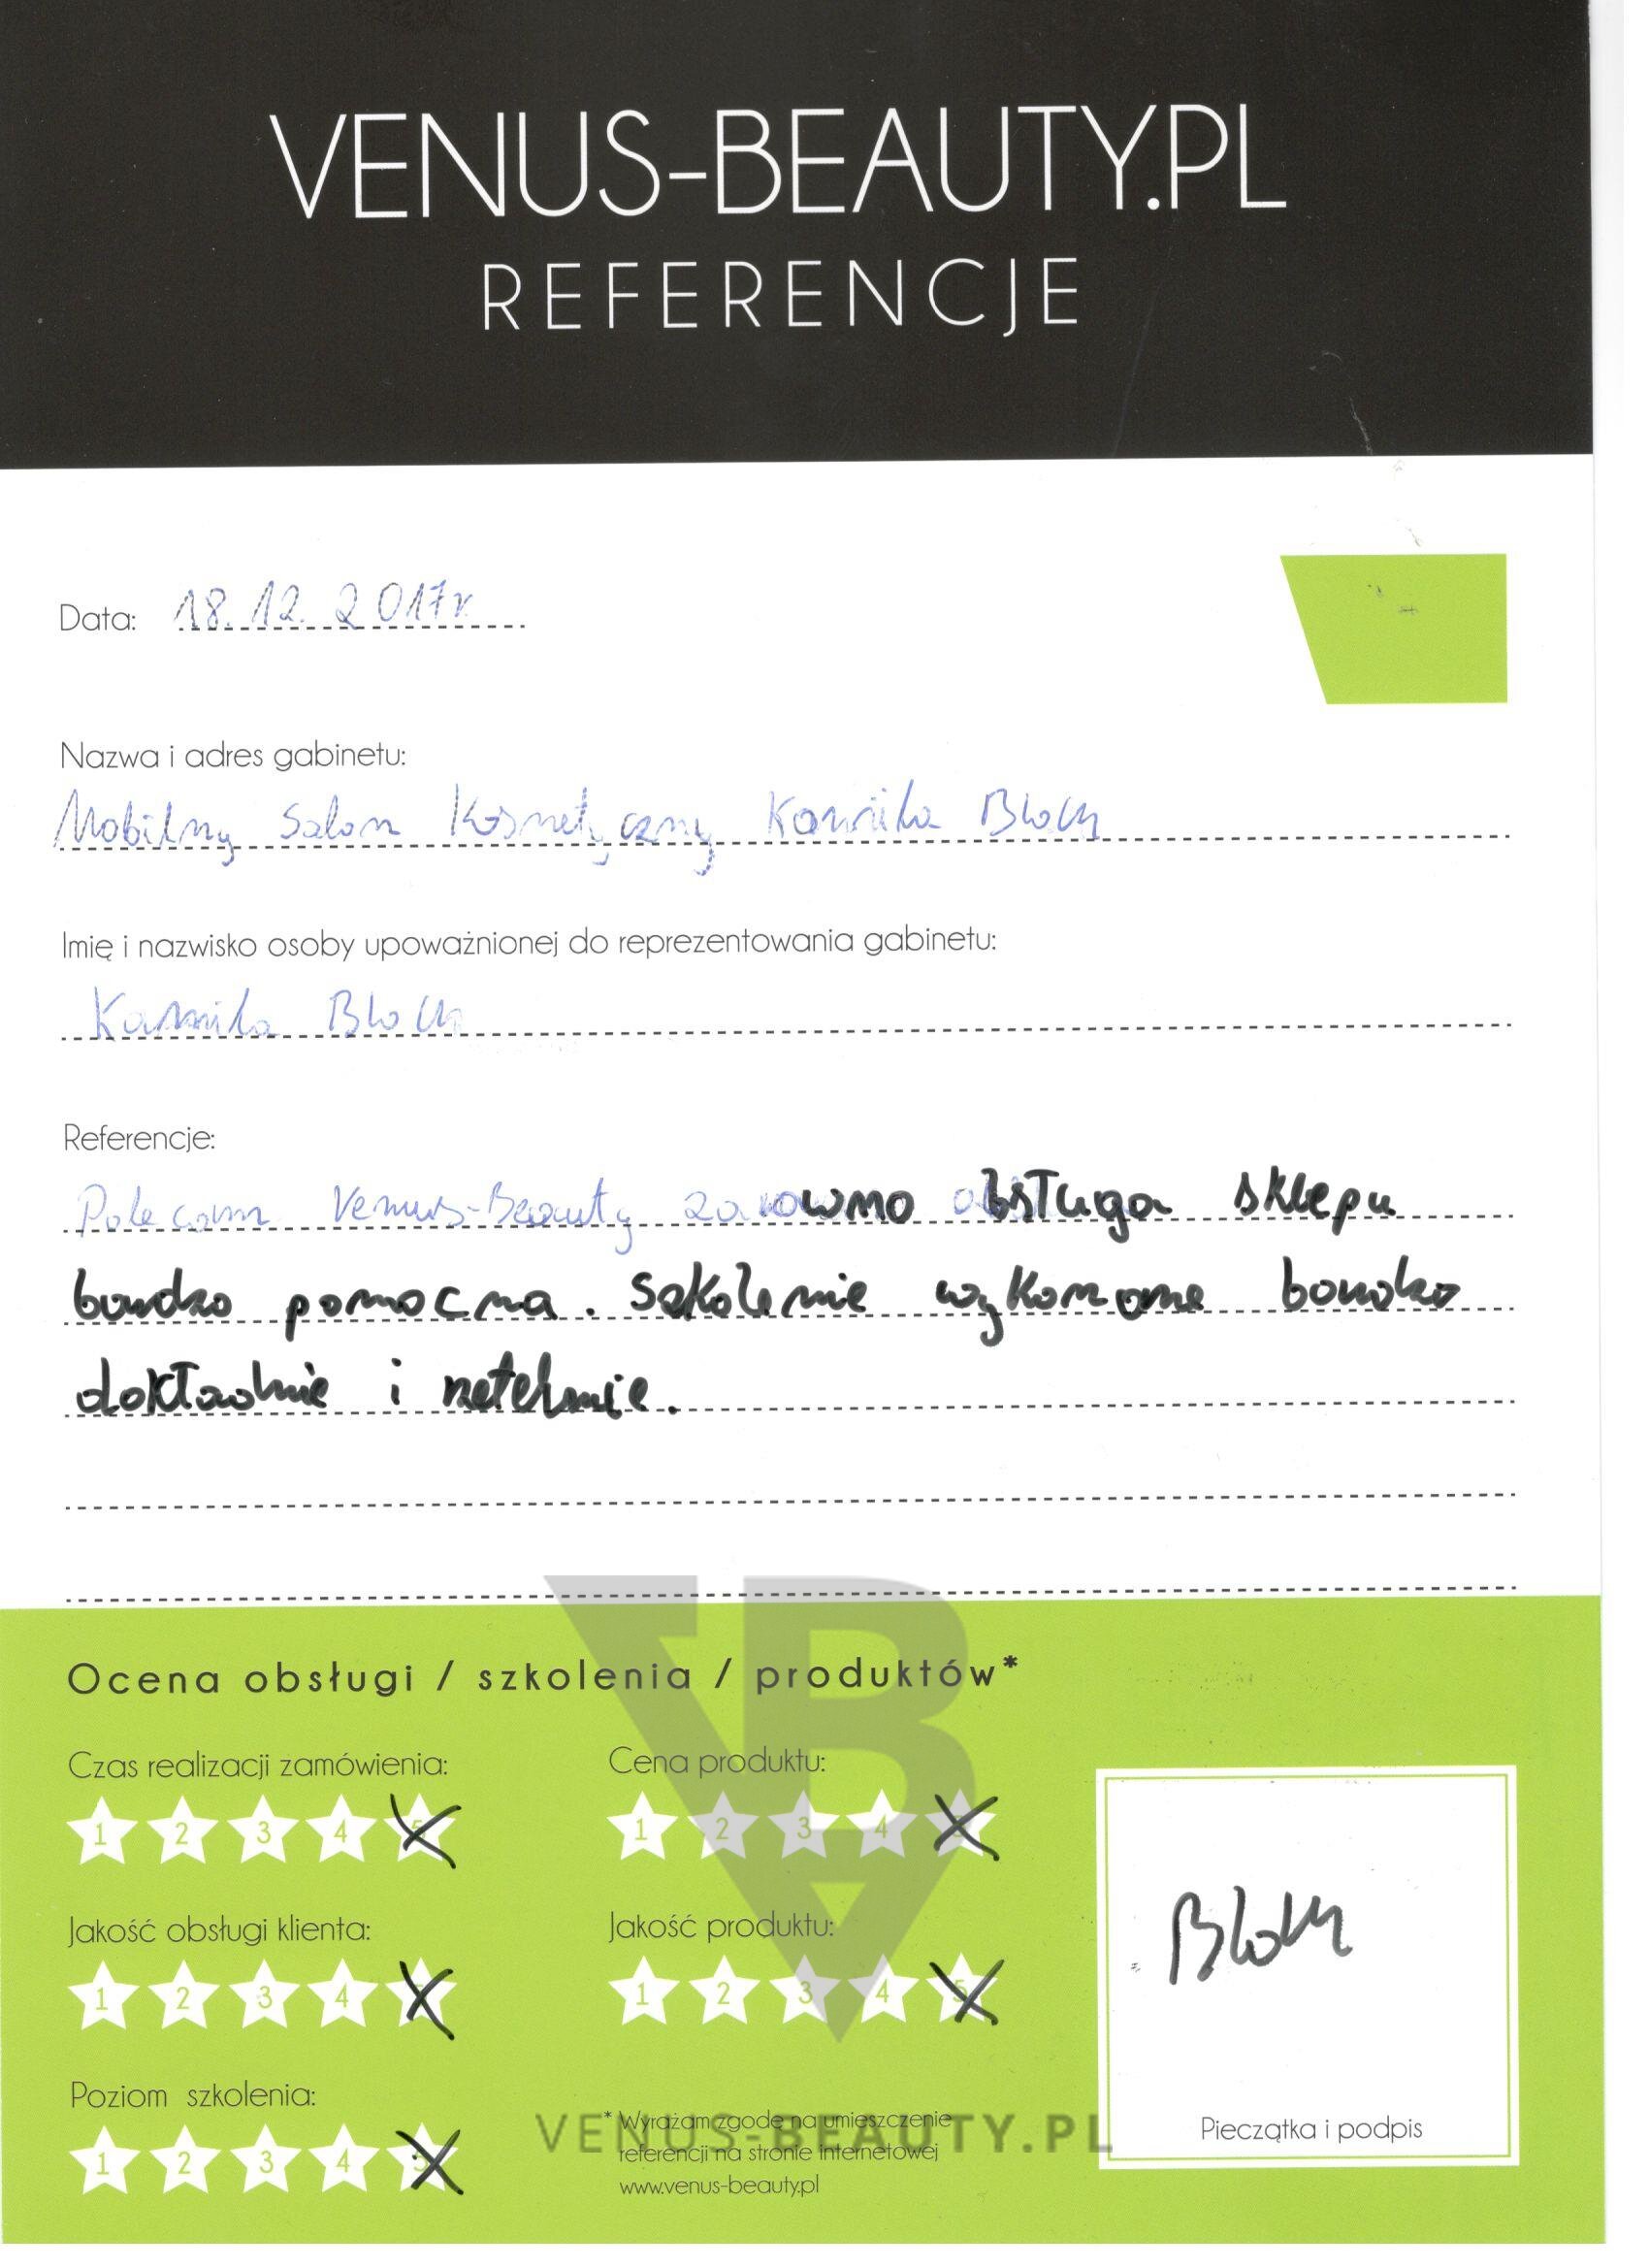 VENUS-BEAUTY.PL
REFERENCJE
Data: 18.12.2017r
Nazwa i adres gabinetu:
Mobilny Salon Kosmetyczny Kamila Bloch
Imię i nazwisko osoby upoważnionej do reprezentowania gabinetu:
Kamila Bloch
Referencje:
Polecam Venus-Beauty zarowno obsługa sklepu
bardzo pomocna. Szkolenie wykonane bardzo
dokładnie i rzetelnie.
Ocena obsługi / szkolenia / produktów*
Czas realizacji zamówienia:
1 2 3 4 5
Cena produktu:
1 2 3 4 5
Jakość obsługi klienta:
1 2 3 4 5
Jakość produktu:
1 2 3 4 5
Bloch
Poziom szkolenia:
1 2 3 4 5
* Wyrażam zgodę na umieszczenie
referencji na stronie internetowej
www.venus-beauty.pl
VENUS-BEAUTY.PL
Pieczątka i podpis